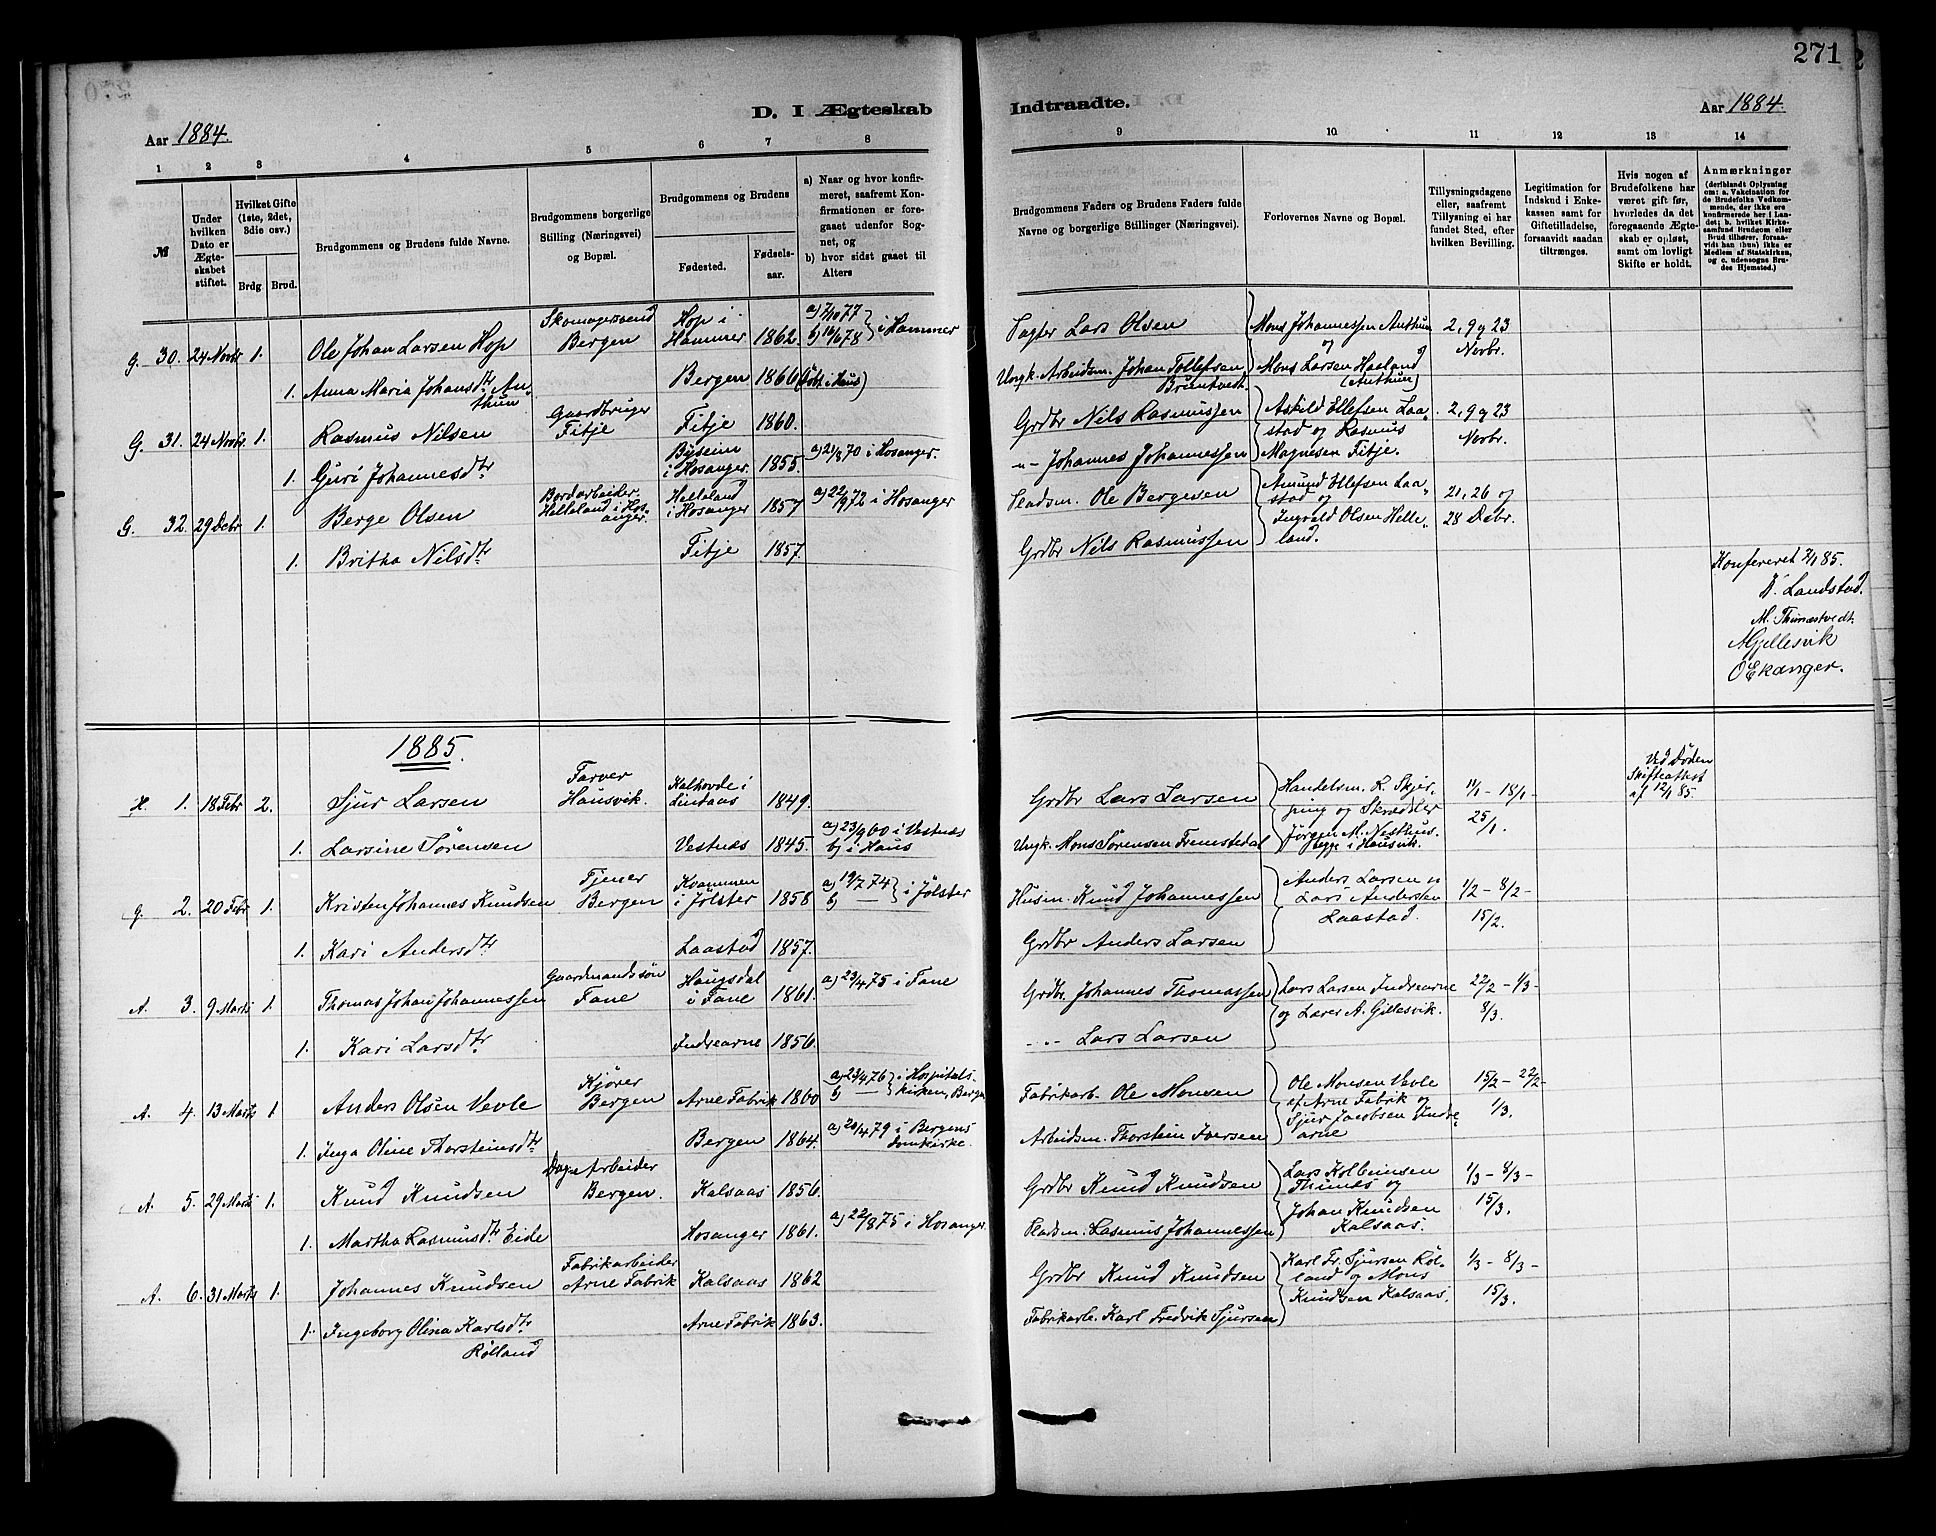 271
D. I Ægteskab
Indtraadte.
Aar 1884.
Aar 1884.
1 2 3 4 5 6 7 8
9 10 11 12 13 14
№
Under hvilken Dato er Ægteskabet stiftet.
Hvilket Gifte (1ste, 2det, 3die osv.)
Brdg.
Brud.
Brudgommens og Brudens fulde Navne.
Brudgommens borgerlige Stilling (Næringsvei) og Bopæl.
Brudgommens og Brudens
Fødested.
Fødselsaar.
a) Naar og hvor konfirmeret, saafremt Konfirmationen er foregaaet udenfor Sognet, og
b) hvor sidst gaaet til Alters
Brudgommens Faders og Brudens Faders fulde Navne og borgerlige Stillinger (Næringsvei).
Forlovernes Navne og Bopæl.
Tillysningsdagene eller, saafremt Tillysning ei har fundet Sted, efter hvilken Bevilling.
Legitimation for Indskud i Enkekassen samt for Giftetilladelse, forsaavidt saadan tiltrænges.
Hvis nogen af Brudefolkene har været gift før, hvorledes da det foregaaende Ægteskab er opløst, samt om lovligt Skifte er holdt.
Anmærkninger
(deriblandt Oplysning om: a. Vakcination for de Brudefolks Vedkommende, der ikke ere konfirmerede her i Landet; b. hvilket Kirkesamfund Brudgom eller Brud tilhører, forsaavidt han (hun) ikke er Medlem af Statskirken, og c. udensogns Brudes Hjemsted.)
G. 30. 24 Novbr 1. Ole Johan Larsen Hop Skomagersvend Bergen Hop i Hammer 1862. a) 7/10 77 b) 16/6 78 } i Hammer Lars Olsen Mons Johannessen Anthun og 2, 9 og 23 Novbr.
1. Anna Maria Johansdtr Anthun Bergen 1866 (døbt i Haus) Johan Tollefsen Brüntvedt. Mons Larsen Haaland (Anthun)
G. 31. 24 Novbr. 1. Rasmus Nilsen Gaardbruger Fitje Fitje 1860. Grdbr Nils Rasmussen Askild Ellefsen Laastad og Rasmus Magnesen Fitje. 2, 9 og 23 Novbr.
1. Guri Johannesdtr i Hosanger. 1855. a) 21/8 70 i Hosanger. -"- Johannes Johannessen
G. 32. 29 Debr 1. Berge Olsen Bordarbeider. Helleland i Hosanger. Helleland i Hosanger 1857 a) 22/9 72 i Hosanger Pladsm. Ole Bergesen Amund Ellefsen Laastad og Ingvald Olsen Helleland. 21, 26 og 28 Debr.
1. Britha Nilsdtr Fitje 1857. Grdbr Nils Rasmussen
Konfereret 2/1 85.
Landstad.
M. Thunestvedt.
AGjellesvik
OEkanger.
1885.
H. 1. 18 Febr 2. Sjur Larsen Farver Hausvik. Kalhovde i Lindaas 1849. Grdbr Lars Larsen Handelsm. R. Skjerping og Skrædder Jørgen M. Nesthus, begge i Hausvik. 11/1 - 18/1 - 25/1. Ved Døden Skifteattest af 12/1 85.
1. Larsine Sørensen Vestnæs 1845. a) 23/9 60 i Vestnæs b) i Haus Ungk. Mons Sørensen Fremstedal
G. 2. 20 Febr 1. Kristen Johannes Knudsen Tjener Bergen Kvammen i Jølster 1858 a) 19/7 74 b) — } i Jølster Husm. Knud Johannessen Anders Larsen og Lars Andersen Laastad. 1/2 - 8/2 - 15/2.
1. Kari Andersdtr Laastad 1857. Grdbr Anders Larsen
A. 3. 9 Marts 1. Thomas Johan Johannessen Gaardmandssøn Fane Haugsdal i Fane 1861. a) 23/4 75 i Fane Grdbr. Johannes Thomassen Lars Larsen Indrearne og Lærer A. Gjllesvik. 22/2 - 1/3 - 8/3.
1. Kari Larsdtr Indrearne 1856. -"- Lars Larsen
A. 4. 13 Marts 1 Anders Olsen Vevle Kjører Bergen Arne Fabrik 1860 a) 23/4 76 b) — } i Hospitalskirken, Bergen Fabrikarb. Ole Monsen Ole Monsen Vevle af Arne Fabrik og Sjur Jacobsen Indrearne 15/2 - 22/2 - 1/3.
1. Inga Oline Thorsteinsdtr Bergen 1864. a) 20/4 79 i Bergens Domkirke. Arbeidsm. Thorstein Iversen
A. 5. 29 Marts 1. Knud Knudsen Arbeider Bergen. Kalsaas 1856. Grdbr Knud Knudsen Lars Kolbeinsen Thunæs og Johan Knudsen Kalsaas. 1/3 - 8/3 - 15/3.
1. Martha Rasmusdtr Eide Hosanger 1861. a) 22/8 75 i Hosanger. Pladsm. Rasmus Johannessen
A. 6. 31 Marts 1. Johannes Knudsen Fabrikarbeider Arne Fabrik Kalsaas 1862 Grdbr Knud Knudsen Karl Fr. Sjursen Rølland og Mons Knudsen Kalsaas. 1/3 - 8/3 - 15/3.
1. Ingeborg Olina Karlsdtr Rølland Arne Fabrik 1863. Fabrikarb. Karl Fredrik Sjursen